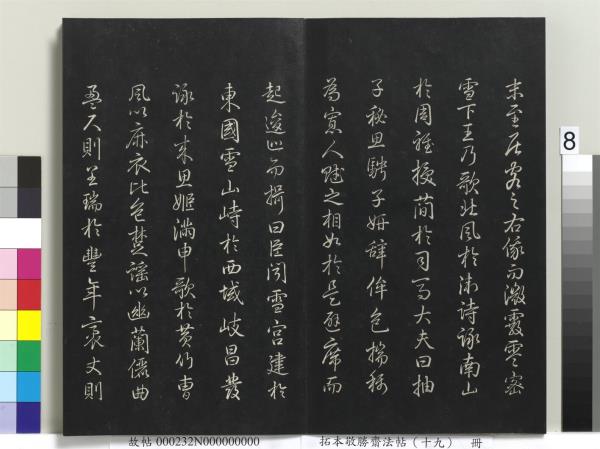 末至居客之右俄而微霰零密
雪下王乃歌北風於衛詩詠南山
於周雅授簡於司馬大夫曰抽
子秘思騁子妍辭侔色揣稱
為寡人賦之相如於是避席而
起逡巡而揖曰臣聞雪宮建於
東國雪山峙於西域岐昌發
詠於來思姬滿申歌於黃竹曹
風以麻衣比色楚謠以幽蘭儷曲
盈尺則呈瑞於豐年袤丈則
8
故帖 000232N000000000
拓本敬勝齋法帖（十九） 冊